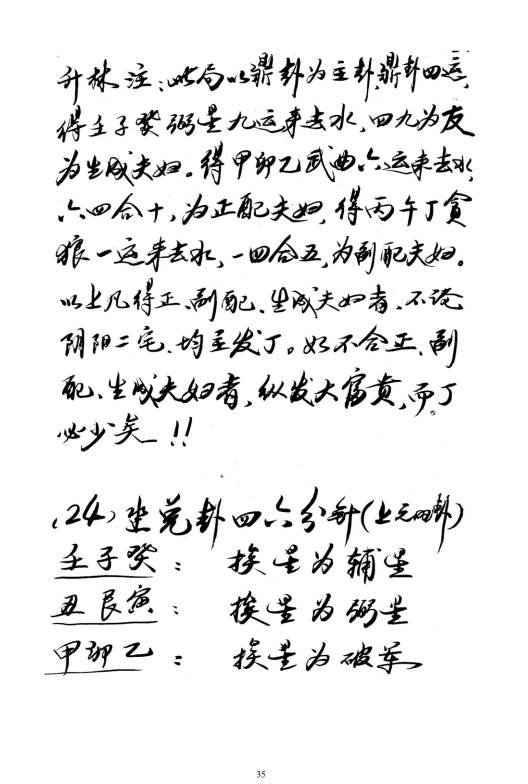 升林注:此局以鼎卦为主卦,鼎卦四运,
得壬子癸弼星九运来去水,四九为友
为生成夫妇。得甲卯乙武曲六运来去水,
六四合十,为正配夫妇,得丙午丁贪
狼一运来去水,一四合五,为副配夫妇。
以上凡得正、副配、生成夫妇者、不论
阴阳二宅、均主发丁。如不合正、副
配、生成夫妇者,纵发大富贵,而丁
必少矣!!
(24)坐兑卦四六分针(上元四卦)
壬子癸:挨星为辅星
丑艮寅:挨星为弼星
甲卯乙:挨星为破军
35